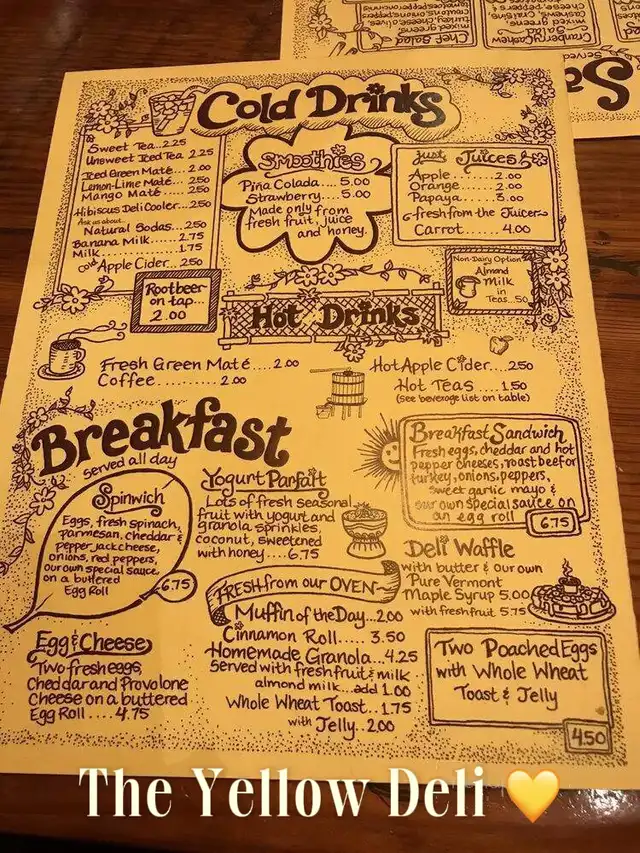 Cold Drinks
Sweet Tea...2.25
Unsweet Iced Tea 2.25
Iced Green Maté.... 2.00
Lemon-Lime Maté... .250
Mango Maté..... .250
Hibiscus Deli Cooler...250
Ask us about...
Natural Sodas...250
Banana Milk....... 2.75
Milk............... 1.75
cold Apple Cider...250
Smoothies
Piña Colada.... 5.00
Strawberry..... 5.00
Made only from
fresh fruit, juice
and honey.
Just Juices
Apple........2.00
Orange.......2.00
Papaya.......3.00
fresh from the Juicer
Carrot.......4.00
Rootbeer
on tap...
2.00
Non-Dairy Option
Almond
Milk
in
Teas..50
Hot Drinks
Fresh Green Maté....2.00
Coffee..........2.00
Hot Apple Cider...250
Hot Teas....1.50
(see beverage list on table)
Breakfast
served all day
Spinwich
Eggs, fresh spinach,
parmesan, cheddar &
pepper jack cheese,
onions, red peppers,
our own special sauce
on a buttered
Egg Roll
6.75
Yogurt Parfait
Lots of fresh seasonal
fruit with yogurt and
granola sprinkles,
coconut, sweetened
with honey....6.75
Breakfast Sandwich
Fresh eggs, cheddar and hot
pepper cheeses, roast beef or
turkey, onions, peppers,
sweet garlic mayo &
our own special sauce on
an egg roll
6.75
Deli Waffle
with butter & our own
Pure Vermont
Maple Syrup 5.00
with fresh fruit 5.75
FRESH from our OVEN
Muffin of the Day...2.00
Cinnamon Roll..... 3.50
Homemade Granola...4.25
Served with fresh fruit & milk
almond milk...add 1.00
Whole Wheat Toast..1.75
with Jelly..2.00
Egg & Cheese
Two fresh eggs,
Cheddar and Provolone
Cheese on a buttered
Egg Roll .... 4.75
Two Poached Eggs
with Whole Wheat
Toast & Jelly
4.50
The Yellow Deli 💛
Chef Salad
mixed greens,
turkey, cheese, olives,
Cranberry Cashew
Salad
mixed greens,
Served